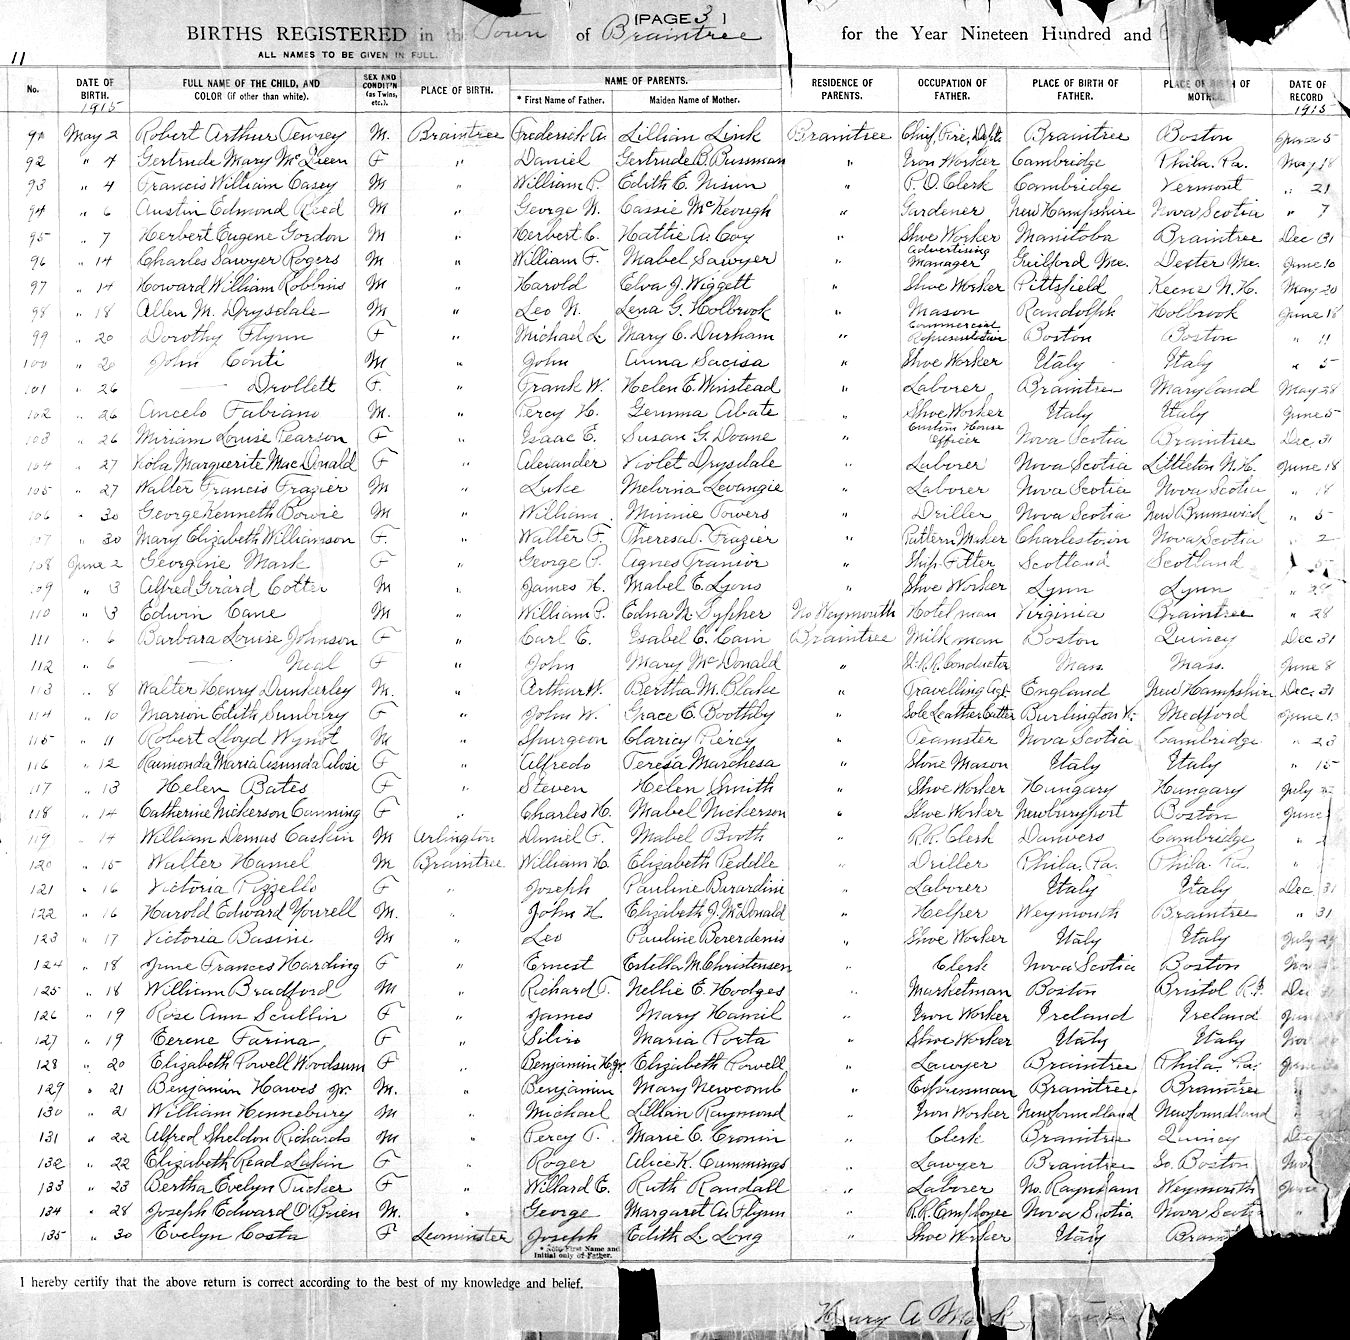 [PAGE 3]
BIRTHS REGISTERED in the Town of Braintree for the Year Nineteen Hundred and
ALL NAMES TO BE GIVEN IN FULL.
11
No. DATE OF BIRTH. 1915 FULL NAME OF THE CHILD, AND COLOR (if other than white). SEX AND CONDIT'N (as Twins, etc.). PLACE OF BIRTH. NAME OF PARENTS. * First Name of Father. Maiden Name of Mother. RESIDENCE OF PARENTS. OCCUPATION OF FATHER. PLACE OF BIRTH OF FATHER. PLACE OF BIRTH OF MOTHER. DATE OF RECORD 1915
91 May 2 Robert Arthur Tenney M. Braintree Frederick A. Lillian Link Braintree Chief, Fire, Dept. Braintree Boston June 5
92 " 4 Gertrude Mary McQueen F " Daniel Gertrude B. Bussman " Iron Worker Cambridge Phila. Pa. May 18
93 " 4 Francis William Casey M " William P. Edith E. " P.O. Clerk Cambridge Vermont " 21
94 " 6 Austin Edmond Reed M " George N. Cassie McKeough " Gardener New Hampshire Nova Scotia " 7
95 " 7 Herbert Eugene Gordon M " Herbert C. Hattie A. Coy " Shoe Worker Manitoba Braintree Dec 31
96 " 14 Charles Sawyer Rogers M " William F. Mabel Sawyer " Advertising Manager Guilford Me. Dexter Me. June 10
97 " 14 Howard William Robbins M " Harold Elva J. Wiggett " Shoe Worker Pittsfield Keene N.H. May 20
98 " 18 Allen M. Drysdale M " Leo N. Lena G. Holbrook " Mason Randolph Holbrook June 18
99 " 20 Dorothy Flynn F " Michael L. Mary C. Durham " Commercial Representative Boston Boston " 11
100 " 26 John Conti M " John Anna Sacisa " Shoe Worker Italy Italy " 5
101 " 26 — Drollett F. " Frank W. Helen E. Winstead " Laborer Braintree Maryland May 28
102 " 26 Ancelo Fabiano M. " Percy H. Gemma Abate " Shoe Worker Italy Italy June 5
103 " 26 Miriam Louise Pearson F " Isaac E. Susan G. Doane " Custom House Officer Nova Scotia Braintree Dec. 31
104 " 27 Viola Marguerite MacDonald F " Alexander Violet Drysdale " Laborer Nova Scotia Littleton N.H. June 18
105 " 27 Walter Francis Frazier M " Luke Melvina Levangie " Laborer Nova Scotia Nova Scotia " 18
106 " 30 George Kenneth Bowie M " William Minnie Towers " Driller Nova Scotia New Brunswick " 5
107 " 30 Mary Elizabeth Williamson F " Walter F. Theresa T. Frazier " Pattern Maker Charlestown Nova Scotia " 2
108 June 2 Georgine Mark F " George P. Agnes Trainor " Ship Fitter Scotland Scotland
109 " 3 Alfred Girard Cotter M " James H. Mabel E. Lyons " Shoe Worker Lynn Lynn " 28
110 " 3 Edwin Cane M " William P. Edna N. Sypher No Weymouth Hotel man Virginia Braintree " 28
111 " 6 Barbara Louise Johnson F " Carl E. Isabel C. Cain Braintree Milk man Boston Quincy Dec 31
112 " 6 — Neal F " John Mary McDonald " St. R.R. Conductor Mass. Mass. June 8
113 " 8 Walter Henry Dunkerley M. " Arthur W. Bertha M. Blake " Travelling Agt. England New Hampshire Dec. 31
114 " 10 Marion Edith Sunbury F " John W. Grace E. Boothby " Sole Leather Cutter Burlington Vt. Medford June 13
115 " 11 Robert Lloyd Wynot M " Spurgeon Claricy Piercy " Teamster Nova Scotia Cambridge " 23
116 " 12 Raimonda Maria Asunda Alosi F " Alfredo Teresa Marchesa " Stone Mason Italy Italy " 15
117 " 13 Helen Bates F " Steven Helen Smith " Shoe Worker Hungary Hungary July
118 " 14 Catherine Nickerson Cunning F " Charles H. Mabel Nickerson " Shoe Worker Newburyport Boston June
119 " 14 William Demas Caskin M Arlington Daniel F. Mabel Booth " R.R. Clerk Danvers Cambridge " 2
120 " 15 Walter Hamel M Braintree William H. Elizabeth Peddle " Driller Phila. Pa. Phila. Pa. "
121 " 16 Victoria Pizzello F " Joseph Pauline Barardini " Laborer Italy Italy Dec 31
122 " 16 Harold Edward Yourell M. " John H Elizabeth J. McDonald " Helper Weymouth Braintree " 31
123 " 17 Victoria Basini M " Leo Pauline Bererdenis " Shoe Worker Italy Italy July 29
124 " 18 June Frances Harding F " Ernest Estella M. Christensen " Clerk Nova Scotia Boston Nov
125 " 18 William Bradford M " Richard T. Nellie E. Hodges " Marketman Boston Bristol R.I. Dec 31
126 " 19 Rose Ann Scullin F " James Mary Hamil " Iron Worker Ireland Ireland June 28
127 " 19 Eerene Farina F " Silvio Maria Porta " Shoe Worker Italy Italy Nov
128 " 20 Elizabeth Powell Woodsum F " Benjamin H. Jr. Elizabeth Powell " Lawyer Braintree Phila. Pa. June
129 " 21 Benjamin Hawes Jr. M. " Benjamin Mary Newcomb " Expressman Braintree Braintree " 30
130 " 21 William Hennebury M " Michael Lillian Raymond " Iron Worker Newfoundland Newfoundland "
131 " 22 Alfred Sheldon Richards M " Percy T. Marie C. Cronin " Clerk Braintree Quincy Dec
132 " 22 Elizabeth Read Lakin F " Roger Alice K. Cummings " Lawyer Braintree So. Boston Nov
133 " 23 Bertha Evelyn Tucker F " Willard E. Ruth Randall " Laborer No. Raynham Weymouth June
134 " 28 Joseph Edward O'Brien M. " George Margaret A. Flynn " R.R. Employee Nova Scotia Nova Scotia "
135 " 30 Evelyn Costa F Leominster Joseph Edith L. Long " Shoe Worker Italy
* Note First Name and Initial only of Father.
I hereby certify that the above return is correct according to the best of my knowledge and belief.
Henry A.